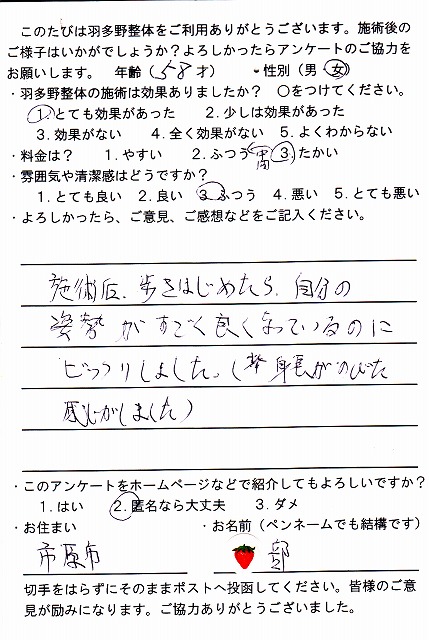 このたびは羽多野整体をご利用ありがとうございます。施術後の
ご様子はいかがでしょうか？よろしかったらアンケートのご協力を
お願いします。 年齢（58才） ・性別（男・女）
・羽多野整体の施術は効果ありましたか？ ○をつけてください。
1.とても効果があった 2.少しは効果があった
3.効果がない 4.全く効果がない 5.よくわからない
・料金は？ 1.やすい 2.ふつう 3.たかい
・雰囲気や清潔感はどうですか？
1.とても良い 2.良い 3.ふつう 4.悪い 5.とても悪い
・よろしかったら、ご意見、ご感想などをご記入ください。
施術后、歩きはじめたら、自分の
姿勢がすごく良くなっているのに
ビックリしました。（身長がのびた
感じがしました）
・このアンケートをホームページなどで紹介してもよろしいですか？
1.はい 2.匿名なら大丈夫 3.ダメ
・お住まい ・お名前（ペンネームでも結構です）
市原市 部
切手をはらずにそのままポストへ投函してください。皆様のご意
見が励みになります。ご協力ありがとうございました。